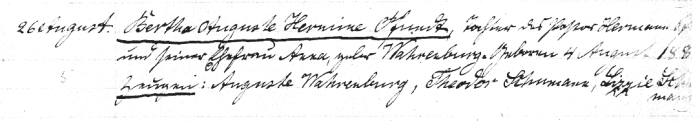 26 August. Bertha Auguste Hermine Pfundt, Tochter des Pastor Hermann
und seiner Ehefrau Anna, geb. Wahrenburg. Geboren 4 August 188
Zeugen: Auguste Wahrenburg, Theodor Schumann, Lizzie
mann